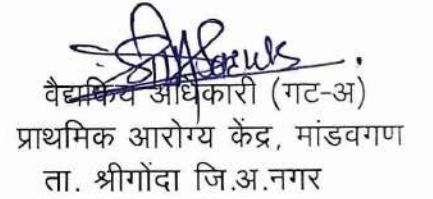 वैद्यकिय अधिकारी (गट-अ)
प्राथमिक आरोग्य केंद्र, मांडवगण
ता. श्रीगोंदा जि.अ.नगर